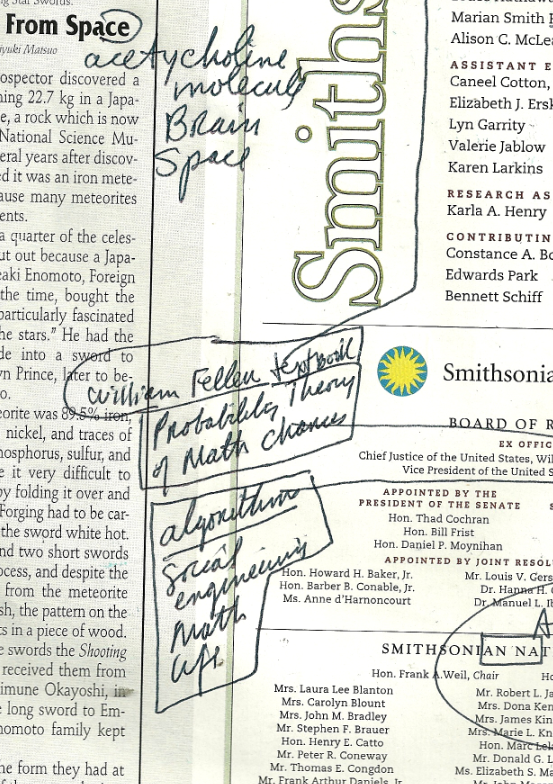 From Space
iyuki Matsuo
ospector discovered a
ning 22.7 kg in a Japa-
e, a rock which is now
National Science Mu-
eral years after discov-
ed it was an iron mete-
ause many meteorites
ents.
a quarter of the celes-
ut out because a Japa-
eaki Enomoto, Foreign
the time, bought the
particularly fascinated
the stars." He had the
de into a sword to
wn Prince, later to be-
o.
eorite was 89.5% iron,
nickel, and traces of
hosphorus, sulfur, and
e it very difficult to
by folding it over and
Forging had to be car-
the sword white hot.
nd two short swords
ocess, and despite the
from the meteorite
sh, the pattern on the
ts in a piece of wood.
e swords the Shooting
received them from
imune Okayoshi, in
e long sword to Em-
nomoto family kept
he form they had at
acetycholine
molecule
Brain
Space
William Feller textbook
Probability Theory
of Math Chances
algorithm
social
engineering
Math
Life
Smiths
Marian Smith
Alison C. McLea
ASSISTANT E
Caneel Cotton,
Elizabeth J. Ersk
Lyn Garrity
Valerie Jablow
Karen Larkins
RESEARCH AS
Karla A. Henry
CONTRIBUTIN
Constance A. Bo
Edwards Park
Bennett Schiff
Smithsonia
BOARD OF R
EX OFFIC
Chief Justice of the United States, Wil
Vice President of the United S
APPOINTED BY THE
PRESIDENT OF THE SENATE
Hon. Thad Cochran
Hon. Bill Frist
Hon. Daniel P. Moynihan
APPOINTED BY JOINT RESOLU
Hon. Howard H. Baker, Jr.
Hon. Barber B. Conable, Jr.
Ms. Anne d'Harnoncourt
Mr. Louis V. Gers
Dr. Hanna H. G
Dr. Manuel L. Ib
SMITHSONIAN NAT
Hon. Frank A. Weil, Chair
Mrs. Laura Lee Blanton
Mrs. Carolyn Blount
Mrs. John M. Bradley
Mr. Stephen F. Brauer
Hon. Henry E. Catto
Mr. Peter R. Coneway
Mr. Thomas E. Congdon
Mr. Frank Arthur Daniels, Jr.
Ho
Mr. Robert L. Ja
Mrs. Dona Ken
Mrs. James Kin
Mrs. Marie L. Kn
Hon. Marc Lel
Mr. Donald G. L
Ms. Elizabeth S. M